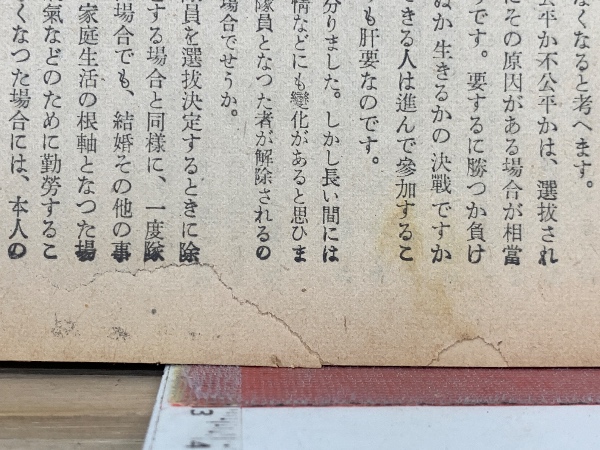 なくなると考へます。
公平か不公平かは、選拔され
にその原因がある場合が相當
うです。要するに勝つか負け
ぬか生きるかの決戰ですか
できる人は進んで參加するこ
も肝要なのです。
分りました。しかし長い間には
情などにも變化があると思ひま
隊員となつた者が解除されるの
場合でせうか。
員を選拔決定するときに除
とする場合と同樣に、一度隊
場合でも、結婚その他の事
家庭生活の根軸となつた場
氣などのために勤勞するこ
くなつた場合には、本人の
3 4